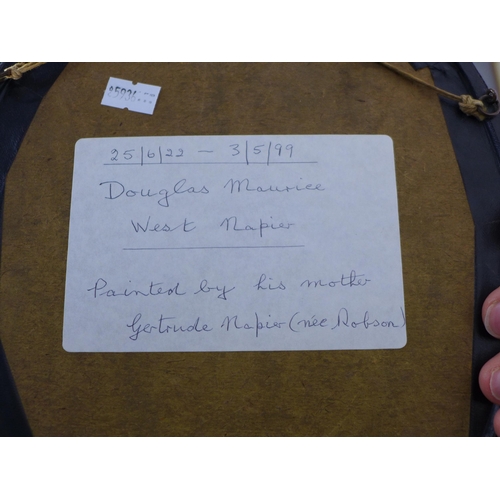 £5936
25/6/22 — 3/5/99
Douglas Maurice
West Napier
Painted by his mother
Gertrude Napier (née Robson)